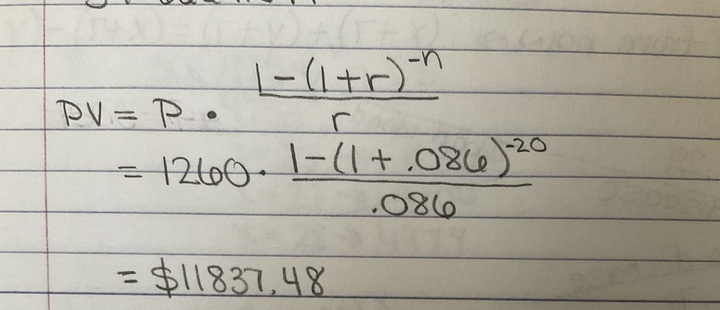 PV = P · (1-(1+r)^-n)/r
= 1260 · (1-(1+.086)^-20)/.086
= $11837.48